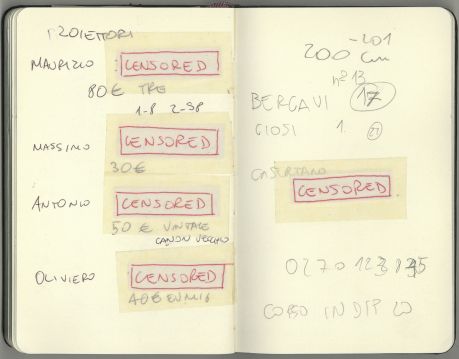 PROIETTORI
MAURIZIO CENSORED
80€ TRE
1-8 2-58
MASSIMO CENSORED
30€
ANTONIO CENSORED
50 € VINTAGE
CANON VECCHIO
OLIVIERO CENSORED
200 cm
n° 13
BERGAVI 17
GIOSI 1. 21
CASERTANO
CENSORED
CORSO INDIP 20